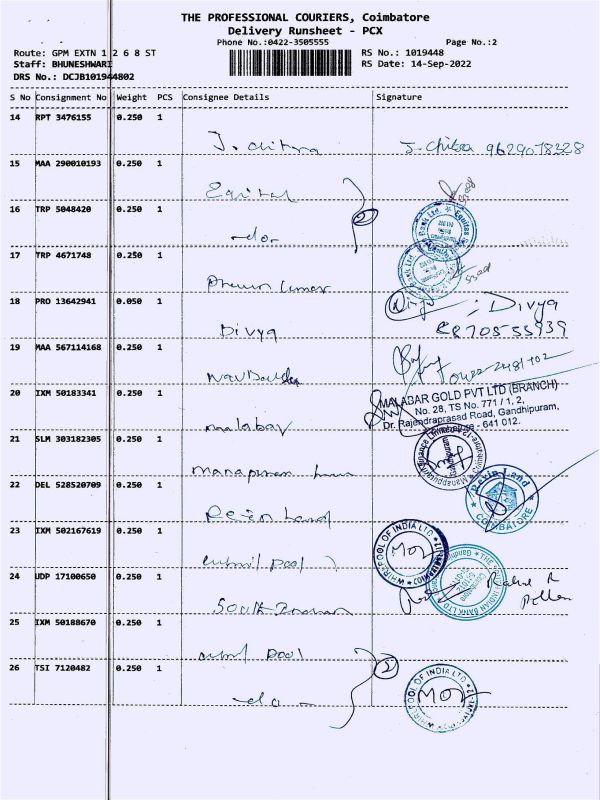 THE PROFESSIONAL COURIERS, Coimbatore
Delivery Runsheet - PCX
Phone No.:0422-3505555
Page No.:2
Route: GPM EXTN 1 2 6 8 ST
RS No.: 1019448
Staff: BHUNESHWARI
RS Date: 14-Sep-2022
DRS No.: DCJB101944802
S No Consignment No Weight PCS Consignee Details Signature
14 RPT 3476155 0.250 1
J. chitra J. chitra 9629078328
15 MAA 290010193 0.250 1
Equitas
16 TRP 5048420 0.250 1
-do-
2
17 TRP 4671748 0.250 1
18 PRO 13642941 0.050 1
Divya
: Divya
19 MAA 567114168 0.250 1
20 IXM 50183341 0.250 1
malabar
MALABAR GOLD PVT LTD (BRANCH)
No. 28, TS No. 771 / 1, 2,
Dr. Rajendraprasad Road, Gandhipuram,
- 641 012.
21 SLM 303182305 0.250 1
manapuram
22 DEL 528520709 0.250 1
Rexin Land
Rexin Land
COIMBATORE
23 IXM 502167619 0.250 1
WHIRLPOOL OF INDIA LTD
24 UDP 17100650 0.250 1
South Indian
INDIAN BANK LTD
Rahul R
25 IXM 50188670 0.250 1
pool
26 TSI 7120482 0.250 1
-do-
2
WHIRLPOOL OF INDIA LTD